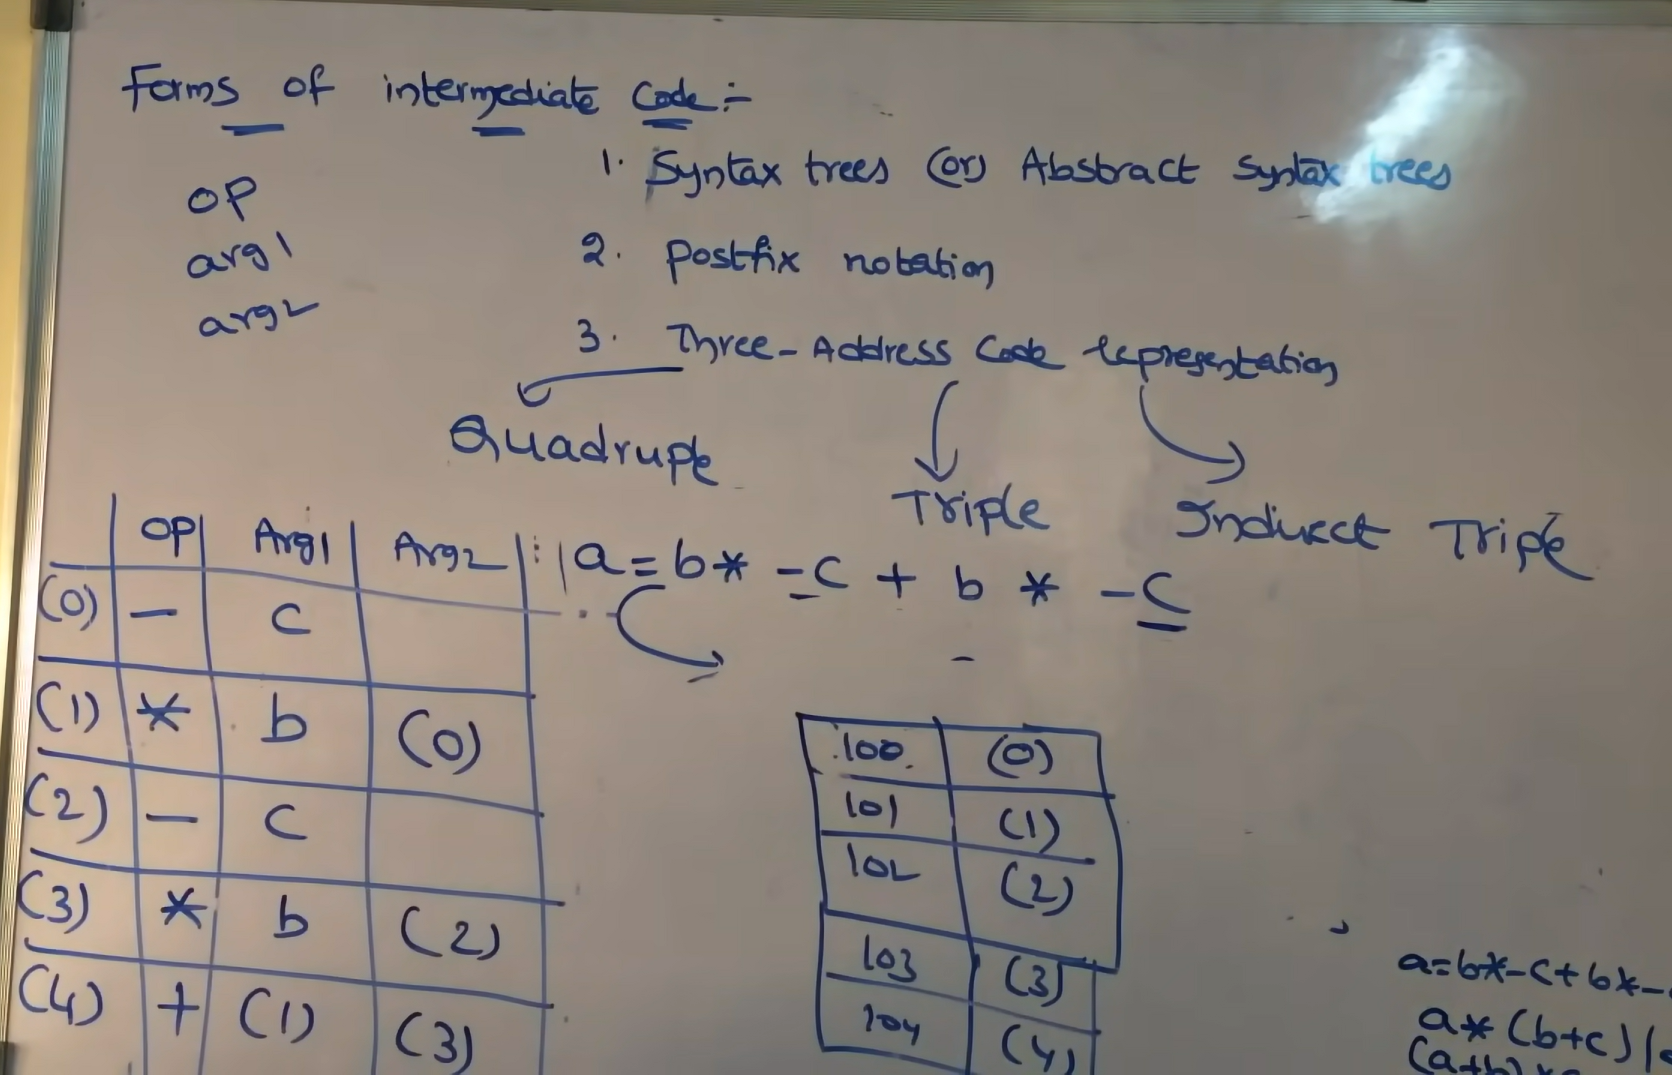 Forms of intermediate Code :-
1. Syntax trees (or) Abstract Syntax trees
OP
arg1
arg2
2. Postfix notation
3. Three-Address Code representation
Quadruple
Triple
Indirect Triple
OP Arg1 Arg2
(0) - c
(1) * b (0)
(2) - c
(3) * b (2)
(4) + (1) (3)
a = b * - c + b * - c
100 (0)
101 (1)
102 (2)
103 (3)
104 (4)
a=b*-c+b*-
a*(b+c)/
(a+b)